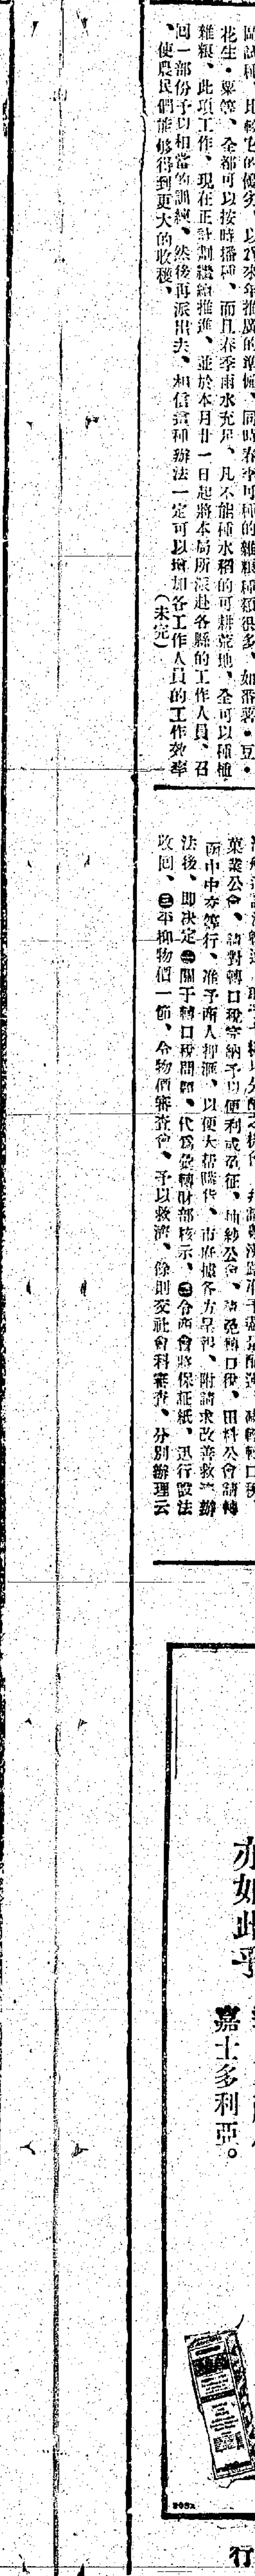 區試種、比較它的優劣、以作來年推廣的準備、同時春季可種的雜糧種類很多、如番薯・豆・
花生・粟等、全都可以按時播種、而且春季雨水充足、凡不能種水稻的可耕荒地、全可以種植
雜糧、此項工作、現在正計劃繼續推進、並於本月廿一日起將本局所派赴各縣的工作人員、召
回一部份予以相當的訓練、然後再派出去、相信這種辦法一定可以增加各工作人員的工作效率
、使農民們能够得到更大的收穫、　（未完）
菓業公會、請對轉口稅完納予以便利或免征、紗公會、請免轉口稅、田料公會請轉
函中中交等行、准予商人押滙、以便大幫購貨、市府據各方呈報、附請求改善救濟辦
法後、即決定㊀關于轉口稅問題、代爲彙轉財部核示、㊁令商會將保証紙、迅行設法
收回、㊂平抑物價一節、令物價審查會、予以救濟、餘則交社會科審查、分別辦理云
亦如此乎
嘉士多利亞。
行